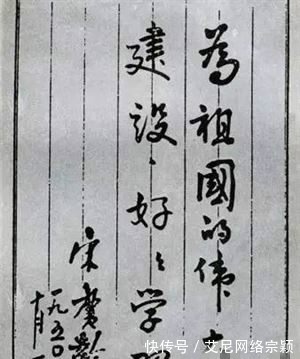 為祖國的伟大
建設、好々学
宋慶齡
一九五〇
十月
快传号 / 艾尼网络宗颖